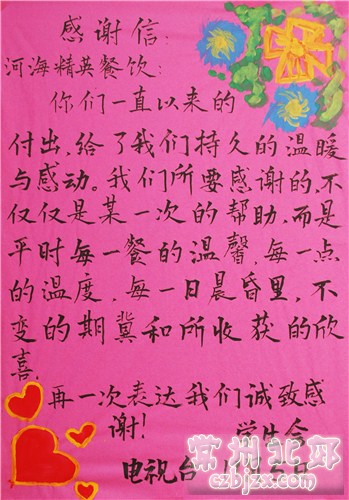 感谢信
河海精英餐饮:
你们一直以来的
付出,给了我们持久的温暖
与感动。我们所要感谢的,不
仅仅是某一次的帮助,而是
平时每一餐的温馨,每一点
的温度,每一日晨昏里,不
变的期冀和所收获的欣
喜.
再一次表达我们诚致感
谢!
学生会
电视台
常州北环
czbjzx.cn